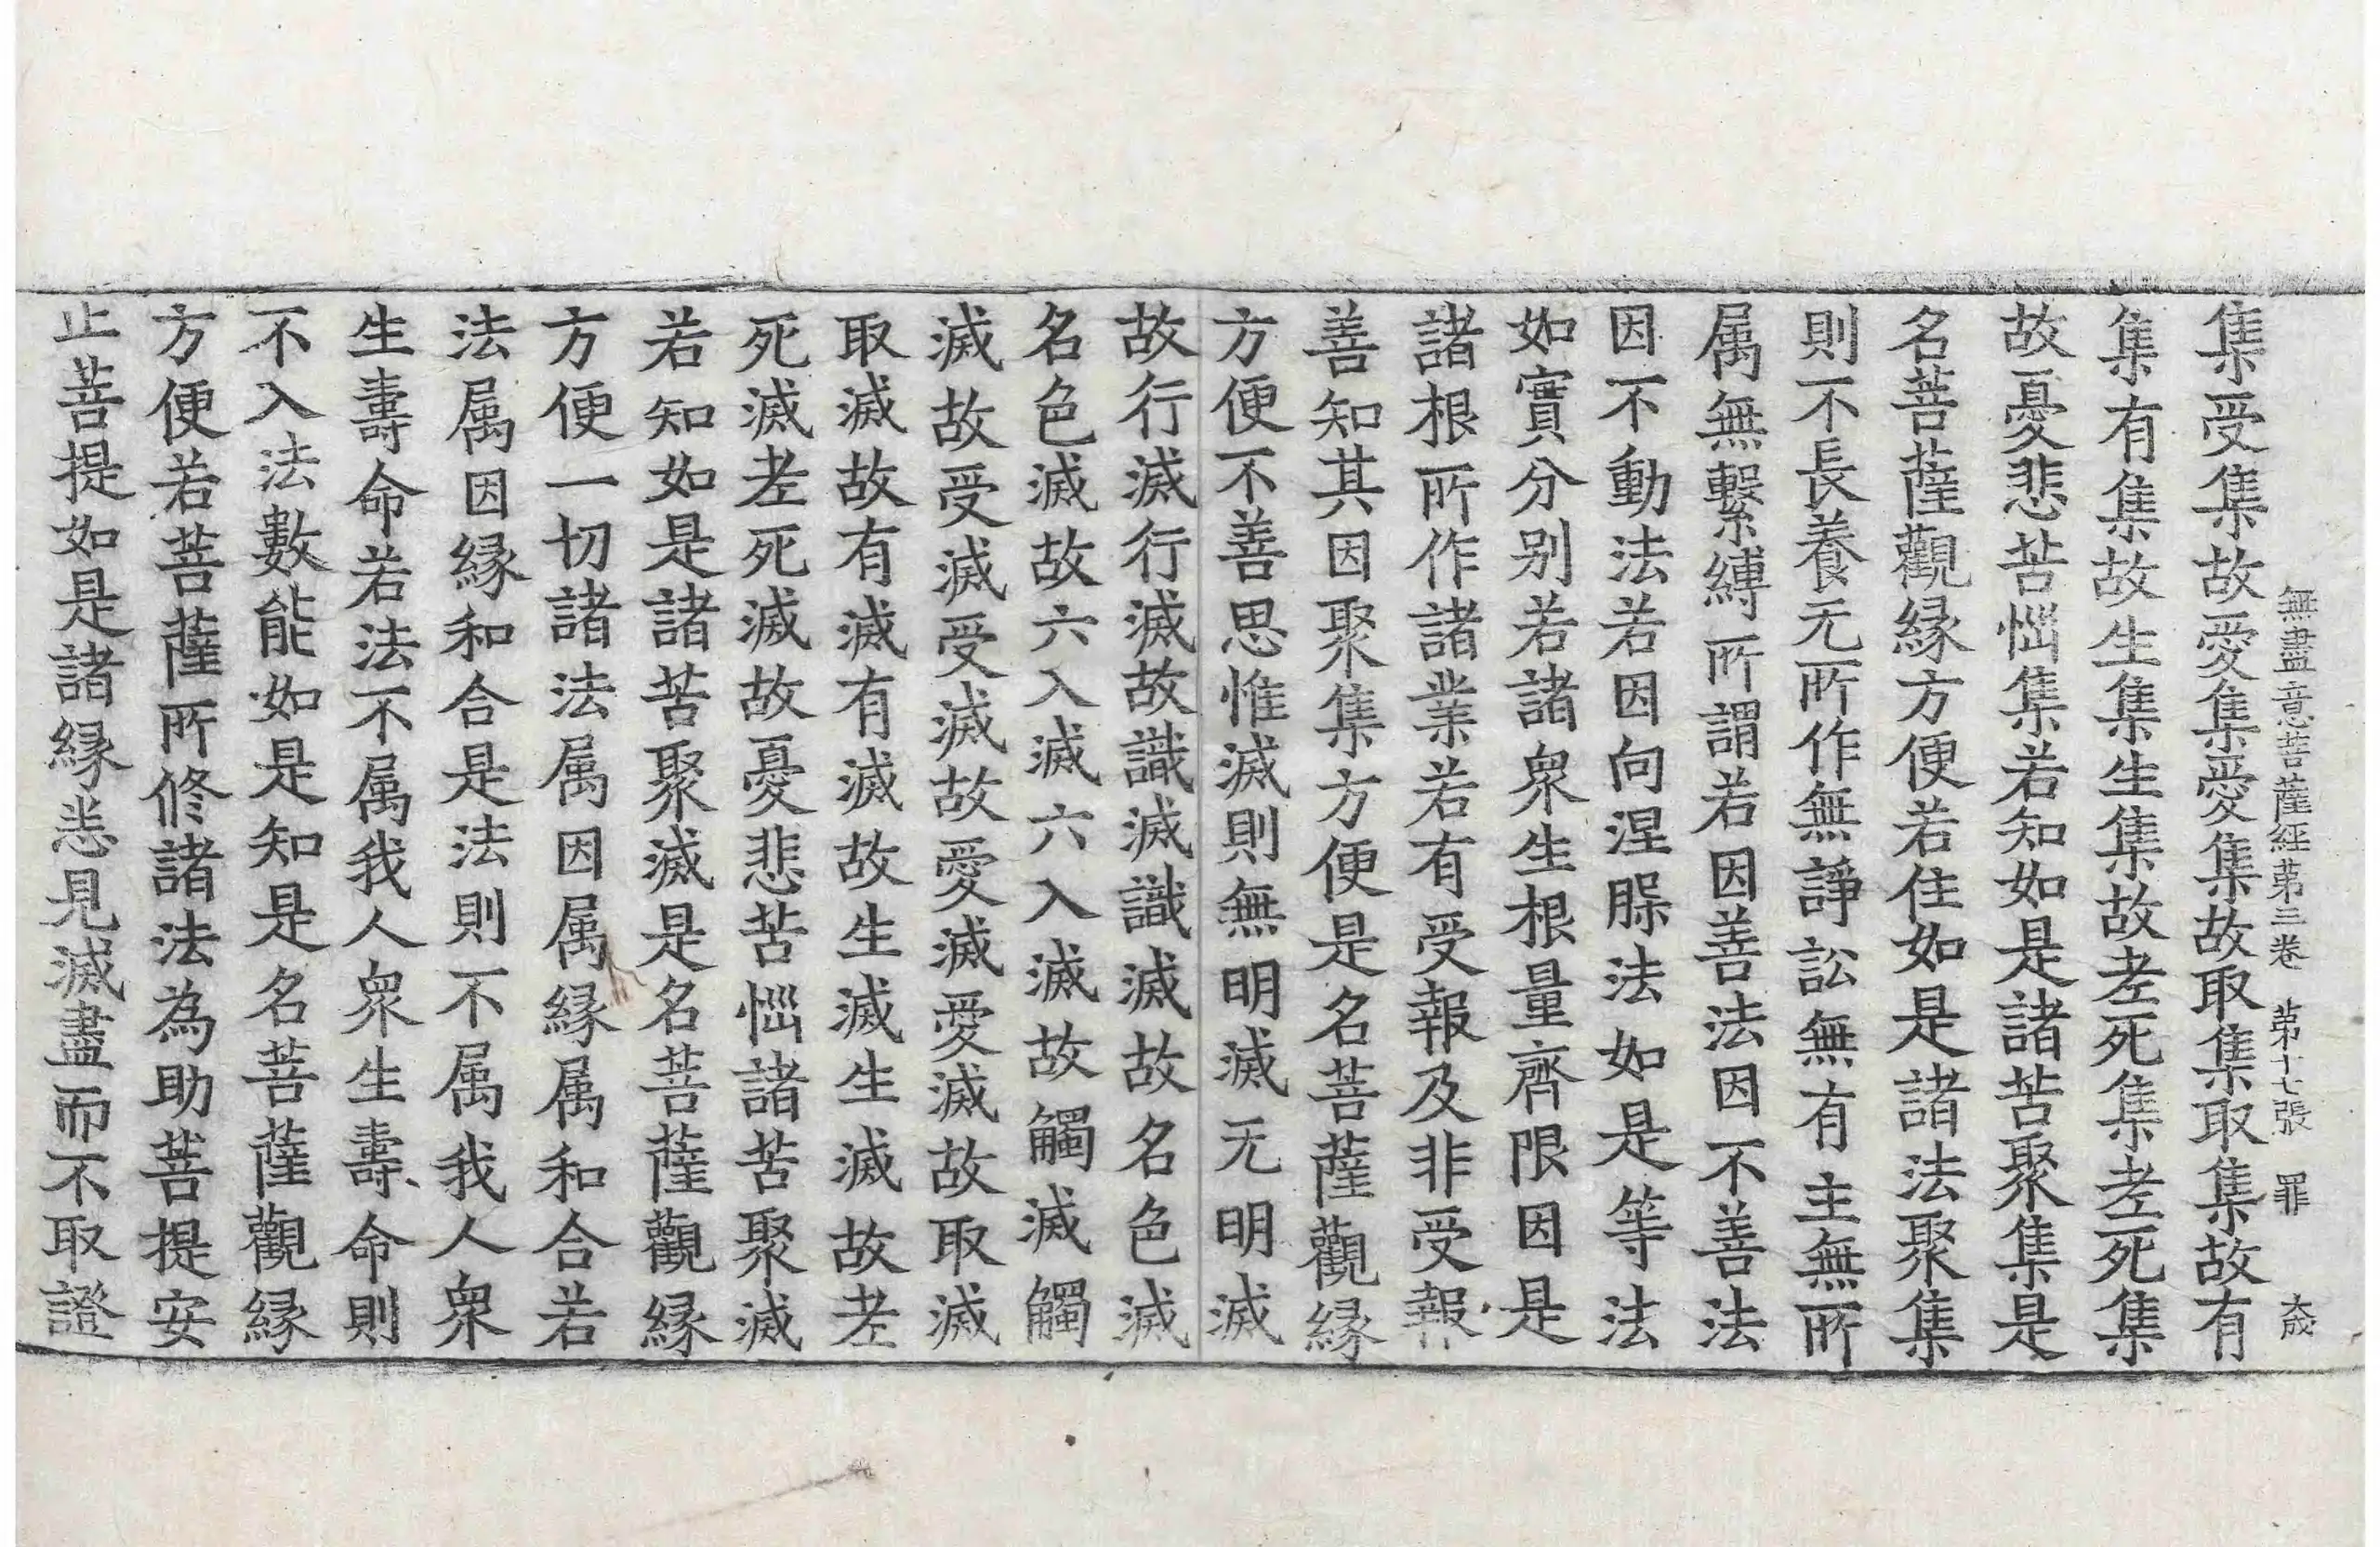 無盡意菩薩經第三卷　第十七張　罪　大成
集受集故愛集愛集故取集取集故有
集有集故生集生集故老死集老死集
故憂悲苦惱集若知如是諸苦聚集是
名菩薩觀縁方便若住如是諸法聚集
則不長養无所作無諍訟無有主無所
属無繫縛所謂若因善法因不善法
因不動法若因向涅槃法如是等法
如實分别若諸衆生根量齊限因是
諸根所作諸業若有受報及非受報
善知其因聚集方便是名菩薩觀縁
方便不善思惟滅則無明滅无明滅
故行滅行滅故識滅識滅故名色滅
名色滅故六入滅六入滅故觸滅觸
滅故受滅受滅故愛滅愛滅故取滅
取滅故有滅有滅故生滅生滅故老
死滅老死滅故憂悲苦惱諸苦聚滅
若知如是諸苦聚滅是名菩薩觀縁
方便一切諸法属因属縁属和合若
法属因縁和合是法則不属我人衆
生壽命若法不属我人衆生壽命則
不入法數能如是知是名菩薩觀縁
方便若菩薩所修諸法為助菩提安
止菩提如是諸縁悉見滅盡而不取證